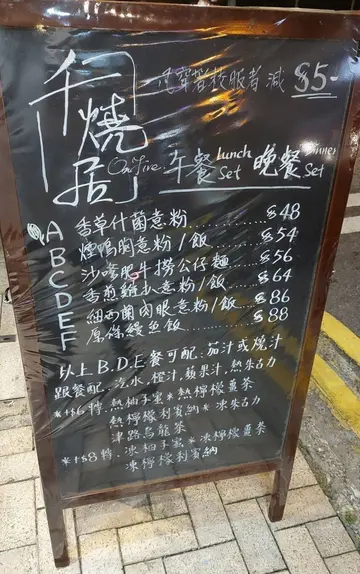 凡穿著校服者減 $5-
千燒居
On Fire
午餐 Lunch Set 晚餐 Dinner Set
A 香草什菌意粉 $48
B 煙鴨胸意粉/飯 $54
C 沙嗲肥牛撈公仔麵 $56
D 香煎雞扒意粉/飯 $64
E 紐西蘭肉眼意粉/飯 $86
F 原條鰻魚飯 $88
以上B.D.E餐可配:茄汁或燒汁
跟餐配:汽水,橙汁,蘋果汁,熱朱古力
*+$6特:熱柚子蜜*熱檸檬薑茶
熱檸檬利賓納*凍朱古力
津路烏龍茶
*+$8特:凍柚子蜜*凍檸檬薑茶
凍檸檬利賓納